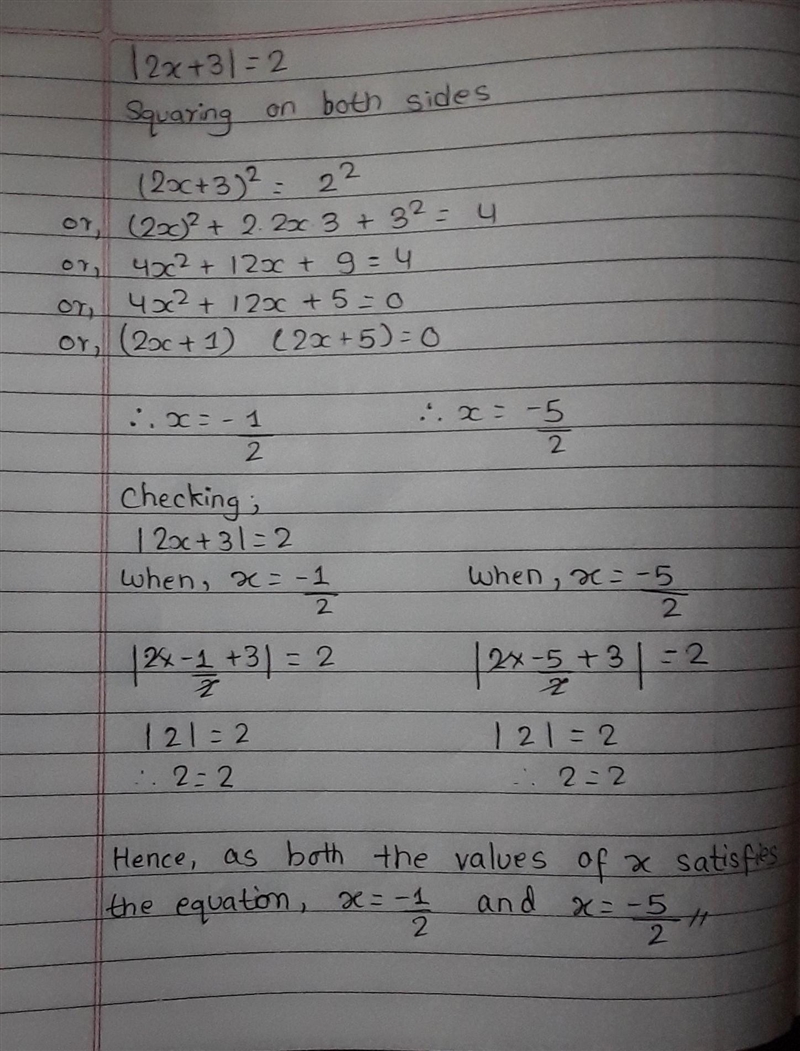 |2x+3|=2
Squaring on both sides
(2x+3)² = 2²
or, (2x)² + 2.2x.3 + 3² = 4
or, 4x² + 12x + 9 = 4
or, 4x² + 12x + 5 = 0
or, (2x+1) (2x+5) = 0
∴ x = -1/2 ∴ x = -5/2
Checking;
|2x+3|=2
When, x = -1/2 When, x = -5/2
|2x-1/2 +3| = 2 |2x-5/2 + 3| = 2
|2| = 2 |2| = 2
∴ 2=2 ∴ 2=2
Hence, as both the values of x satisfies
the equation, x = -1/2 and x = -5/2 //